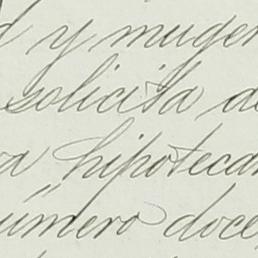 d y muger
solicita de
va hipotecar
número doce